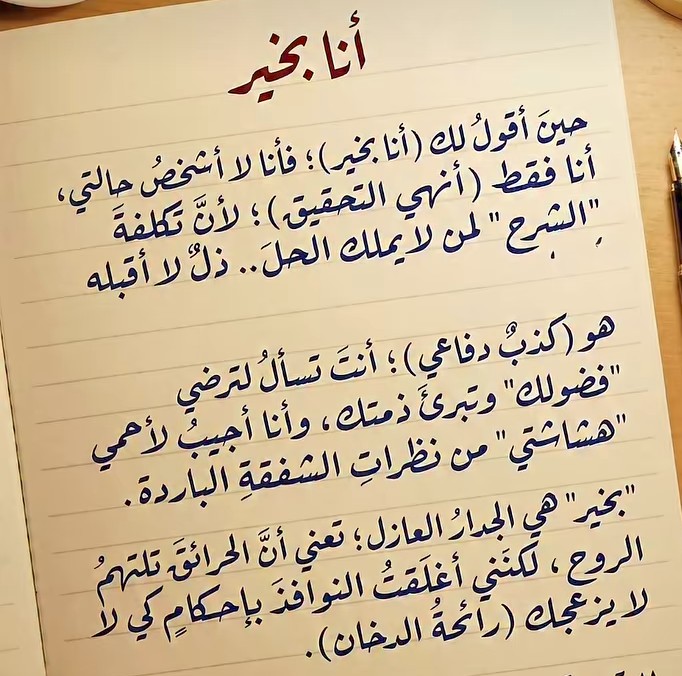 أنا بخير
حينَ أقولُ لك (أنا بخير)؛ فأنا لا أشخصُ حالتي،
أنا فقط (أنهي التحقيق)؛ لأنَّ تكلفةَ
"الشرح" لمن لا يملك الحلَ.. ذلٌ لا أقبله
هو (كذبٌ دفاعي)؛ أنتَ تسألُ لترضي
"فضولك" وتبرئَ ذمتك، وأنا أجيبُ لأحمي
"هشاشتي" من نظراتِ الشفقةِ الباردة.
"بخير" هي الجدارُ العازل؛ تعني أنَّ الحرائقَ تلتهمُ
الروح، لكنَني أغلَقتُ النوافذَ بإحكامٍ كي لا
لا يزعجك (رائحةُ الدخان).